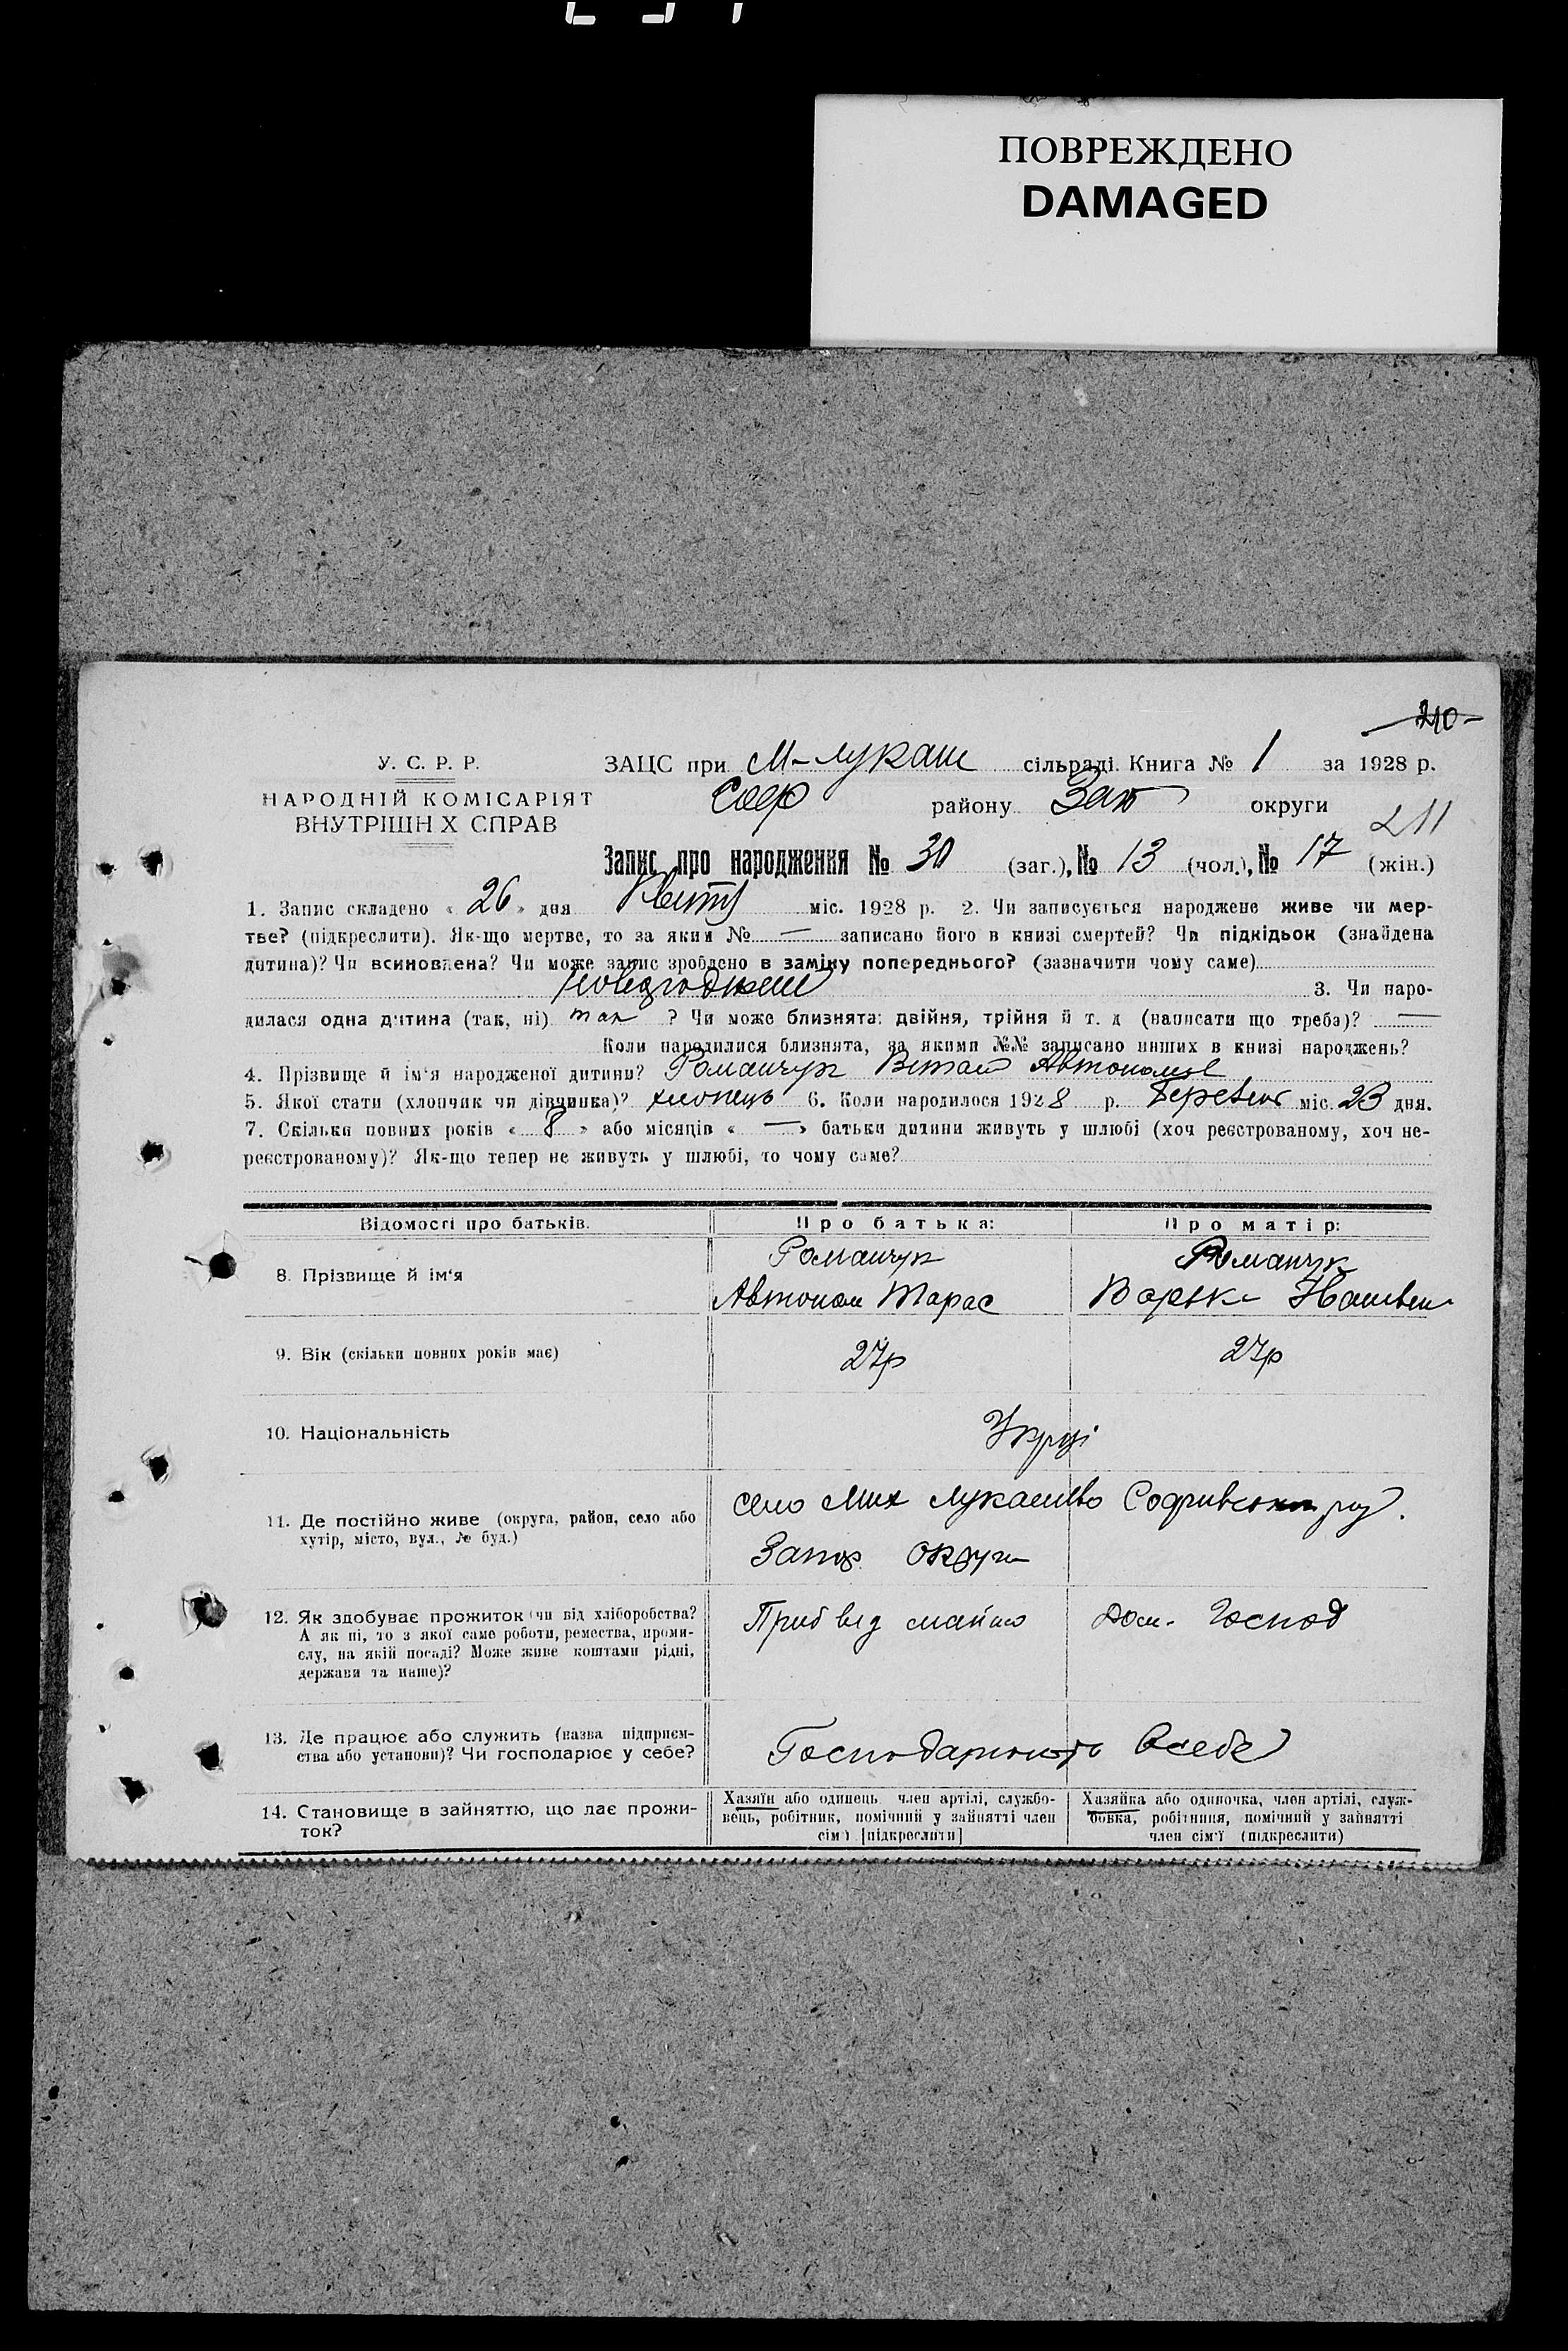 ПОВРЕЖДЕНО
DAMAGED
210
У. С. Р. Р.
НАРОДНІЙ КОМІСАРІЯТ
ВНУТРІШН Х СПРАВ
ЗАЦС при М-лукаш сільраді. Книга № 1 за 1928 р.
Соф району Зап округи
211
Запис про народження № 30 (заг.), № 13 (чол.), № 17 (жін.)
1. Запис складено « 26 » дня Квіт міс. 1928 р. 2. Чи записується народжене живе чи мер-
тве? (підкреслити). Як-що мертве, то за яким № — записано його в книзі смертей? Чи підкідьок (знайдена
дитина)? Чи всиновлена? Чи може запис зроблено в заміну попереднього? (зазначити чому саме)
3. Чи наро-
дилася одна дитина (так, ні) так ? Чи може близнята: двійня, трійня й т. д (написати що треба)? —
Коли народилися близнята, за якими №№ записано инших в книзі народжень?
4. Прізвище й ім'я народженої дитини? Романчук Автоном
5. Якої стати (хлопчик чи дівчинка)? хлопець 6. Коли народилося 1928 р. Березня міс. 23 дня.
7. Скільки повних років « 8 » або місяців « — » батьки дитини живуть у шлюбі (хоч реєстрованому, хоч не-
реєстрованому)? Як-що тепер не живуть у шлюбі, то чому саме?
Відомості про батьків. Про батька: Про матір:
8. Прізвище й ім'я
Романчук Романчук
Автоном Тарас Варька
9. Вік (скільки повних років має) 27р 27р
10. Національність Укрці
11. Де постійно живе (округа, район, село або
хутір, місто, вул., № буд.)
село Мих Лукашево Софиевск ра.
Запор округи
12. Як здобуває прожиток (чи від хліборобства?
А як ні, то з якої саме роботи, ремества, проми-
слу, на якій посаді? Може живе коштами рідні,
держави та инше)?
Приб від майна Дом. Господ
13. Де працює або служить (назва підприєм-
ства або установи)? Чи господарює у себе?
Господарюють Всебе
14. Становище в зайняттю, що дає прожи-
ток?
Хазяїн або одинець член артілі, службо-
вець, робітник, помічний у зайнятті член
сім'ї [підкреслити]
Хазяйка або одиночка, член артілі, служ-
бовка, робітниця, помічний у зайнятті
член сім'ї (підкреслити)